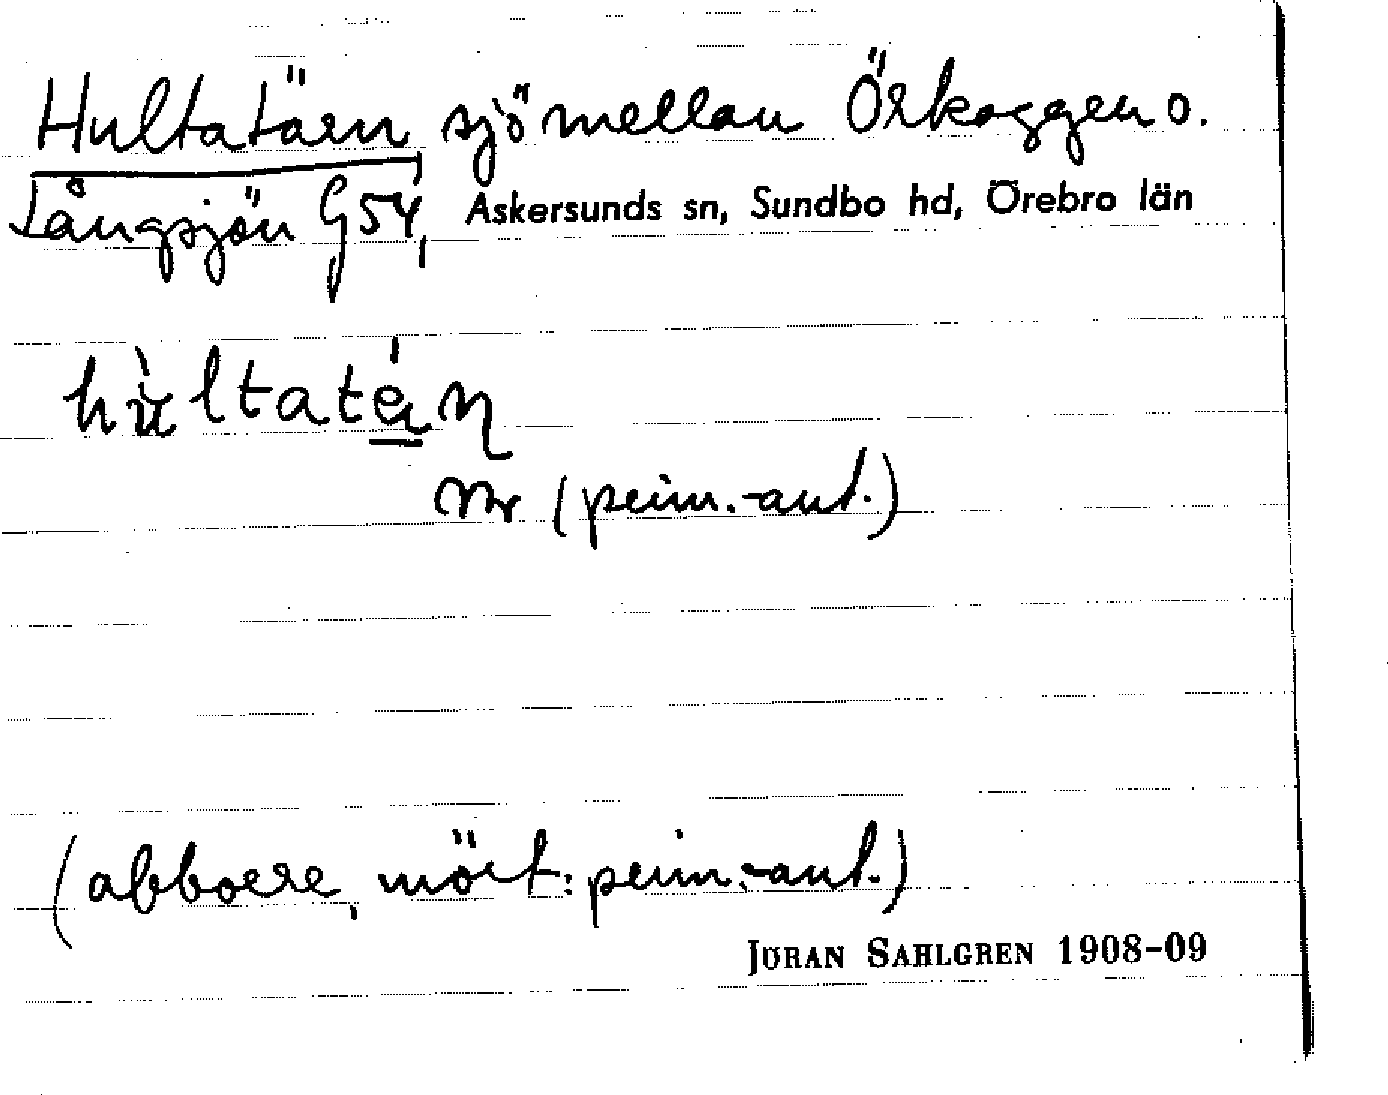 Hultatärn sjö mellan Örkaggen o.
Långsjön G54, Askersunds sn, Sundbo hd, Örebro län
hù̀ltatä́ɳ
mr (prim.-ant.)
(abborre, mört: prim.-ant.)
JÖRAN SAHLGREN 1908-09